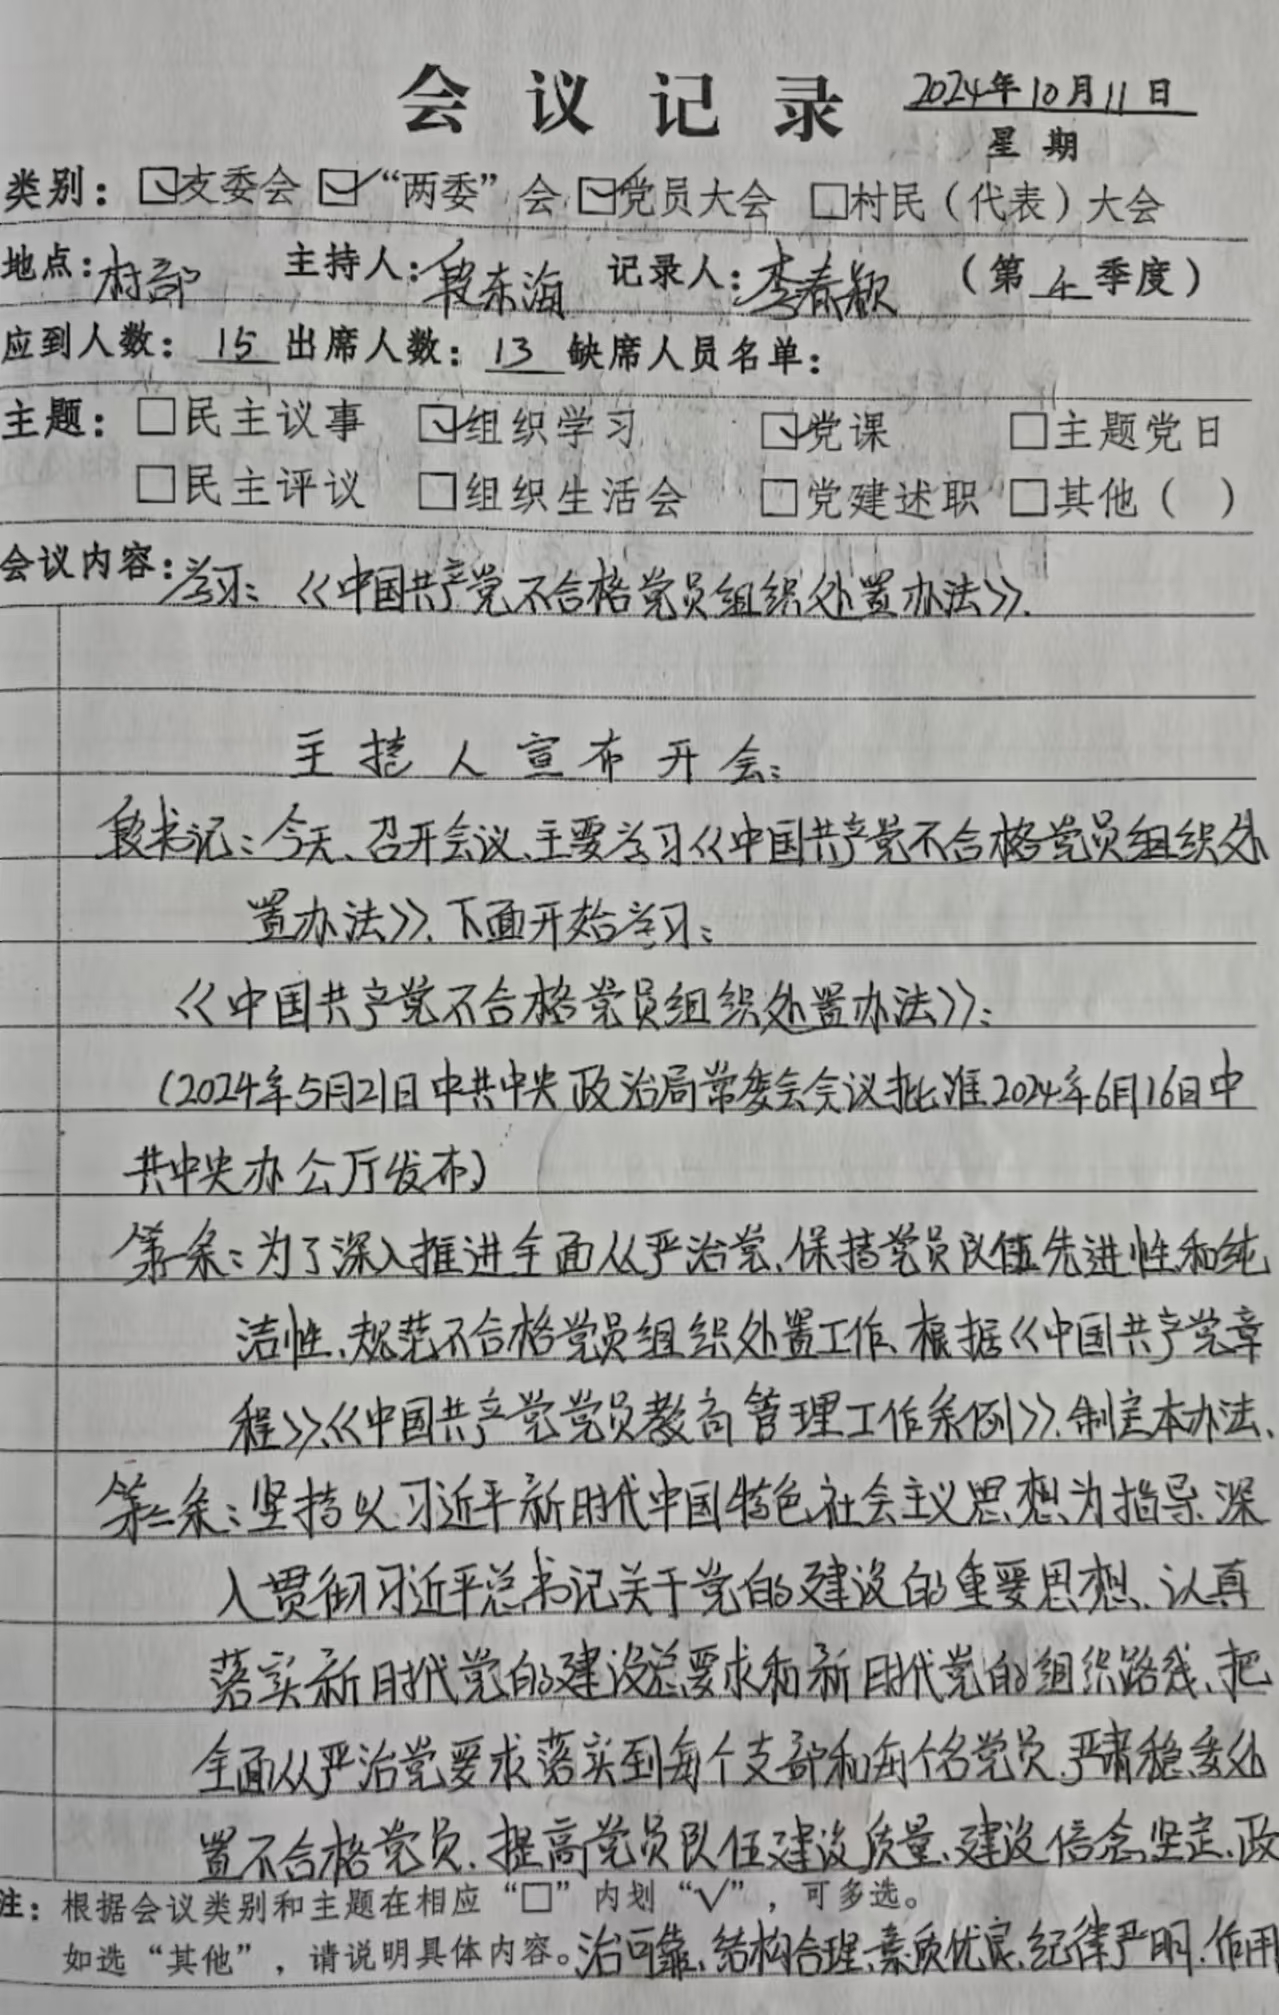 会议记录 2024年10月11日
星期
类别：☑支委会 ☑“两委”会 ☑党员大会 □村民（代表）大会
地点：村部 主持人：段东海 记录人：李春颖 （第4季度）
应到人数：15 出席人数：13 缺席人员名单：
主题：□民主议事 ☑组织学习 ☑党课 □主题党日
□民主评议 □组织生活会 □党建述职 □其他（ ）
会议内容：学习：《中国共产党不合格党员组织处置办法》.
主持人宣布开会：
段书记：今天、召开会议、主要学习《中国共产党不合格党员组织处
置办法》. 下面开始学习：
《中国共产党不合格党员组织处置办法》：
（2024年5月21日中共中央政治局常委会会议批准2024年6月16日中
共中央办公厅发布）
第一条：为了深入推进全面从严治党、保持党员队伍先进性和纯
洁性、规范不合格党员组织处置工作、根据《中国共产党章
程》、《中国共产党党员教育管理工作条例》、制定本办法、
第二条：坚持以习近平新时代中国特色社会主义思想为指导、深
入贯彻习近平总书记关于党的建设的重要思想、认真
落实新时代党的建设总要求和新时代党的组织路线、把
全面从严治党要求落实到每个支部和每个名党员、严肃稳妥处
置不合格党员、提高党员队伍建设质量、建设信念坚定、政
注：根据会议类别和主题在相应“□”内划“√”，可多选。
如选“其他”，请说明具体内容。治可靠、结构合理、素质优良、纪律严明、作用